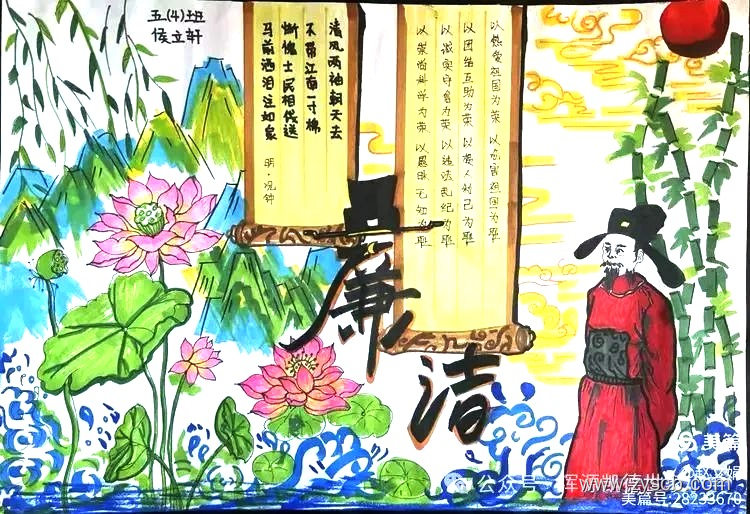 五(4)班
侯立轩
清风两袖朝天去
不带江南一寸棉
惭愧士民相饯送
马前洒泪注如泉
明·况钟
以热爱祖国为荣 以危害祖国为耻
以团结互助为荣 以损人利己为耻
以诚实守信为荣 以违法乱纪为耻
以崇尚科学为荣 以愚昧无知为耻
廉洁
美篇
公众号
美篇号:28233670